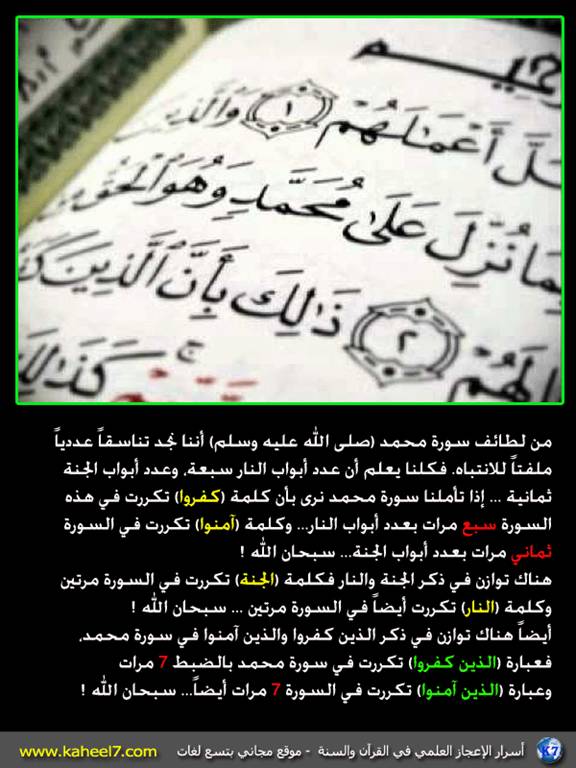 ـيم
ـلَّ أَعْمَٰلَهُمْ ١ وَالَّذِينَ
بِمَا نُزِّلَ عَلَىٰ مُحَمَّدٍ وَهُوَ الْحَقُّ
ـالَهُمْ ٢ ذَٰلِكَ بِأَنَّ الَّذِينَ كَفَـ
كَذَٰلِكَ
من لطائف سورة محمد (صلى الله عليه وسلم) أننا نجد تناسقاً عددياً
ملفتاً للانتباه. فكلنا يعلم أن عدد أبواب النار سبعة، وعدد أبواب الجنة
ثمانية ... إذا تأملنا سورة محمد نرى بأن كلمة (كفروا) تكررت في هذه
السورة سبع مرات بعدد أبواب النار... وكلمة (آمنوا) تكررت في السورة
ثماني مرات بعدد أبواب الجنة... سبحان الله !
هناك توازن في ذكر الجنة والنار فكلمة (الجنة) تكررت في السورة مرتين
وكلمة (النار) تكررت أيضاً في السورة مرتين ... سبحان الله !
أيضاً هناك توازن في ذكر الذين كفروا والذين آمنوا في سورة محمد،
فعبارة (الذين كفروا) تكررت في سورة محمد بالضبط 7 مرات
وعبارة (الذين آمنوا) تكررت في السورة 7 مرات أيضاً... سبحان الله !
أسرار الإعجاز العلمي في القرآن والسنة - موقع مجاني بتسع لغات www.kaheel7.com
K7